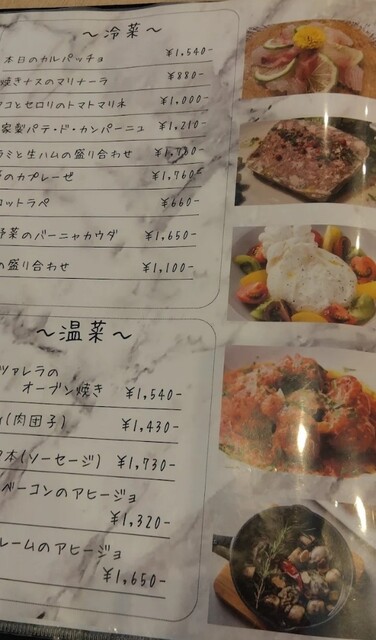 ～冷菜～
本日のカルパッチョ ¥1,540-
焼きナスのマリナーラ ¥880-
コとセロリのトマトマリネ ¥1,000-
家製パテ・ド・カンパーニュ ¥1,210-
ラミと生ハムの盛り合わせ
のカプレーゼ ¥1,760-
ロットラペ ¥660-
野菜のバーニャカウダ ¥1,650-
の盛り合わせ ¥1,100-
～温菜～
ツァレラの
オーブン焼き ¥1,540-
(肉団子) ¥1,430-
本(ソーセージ) ¥1,730-
ベーコンのアヒージョ
¥1,320-
ルームのアヒージョ
¥1,650-